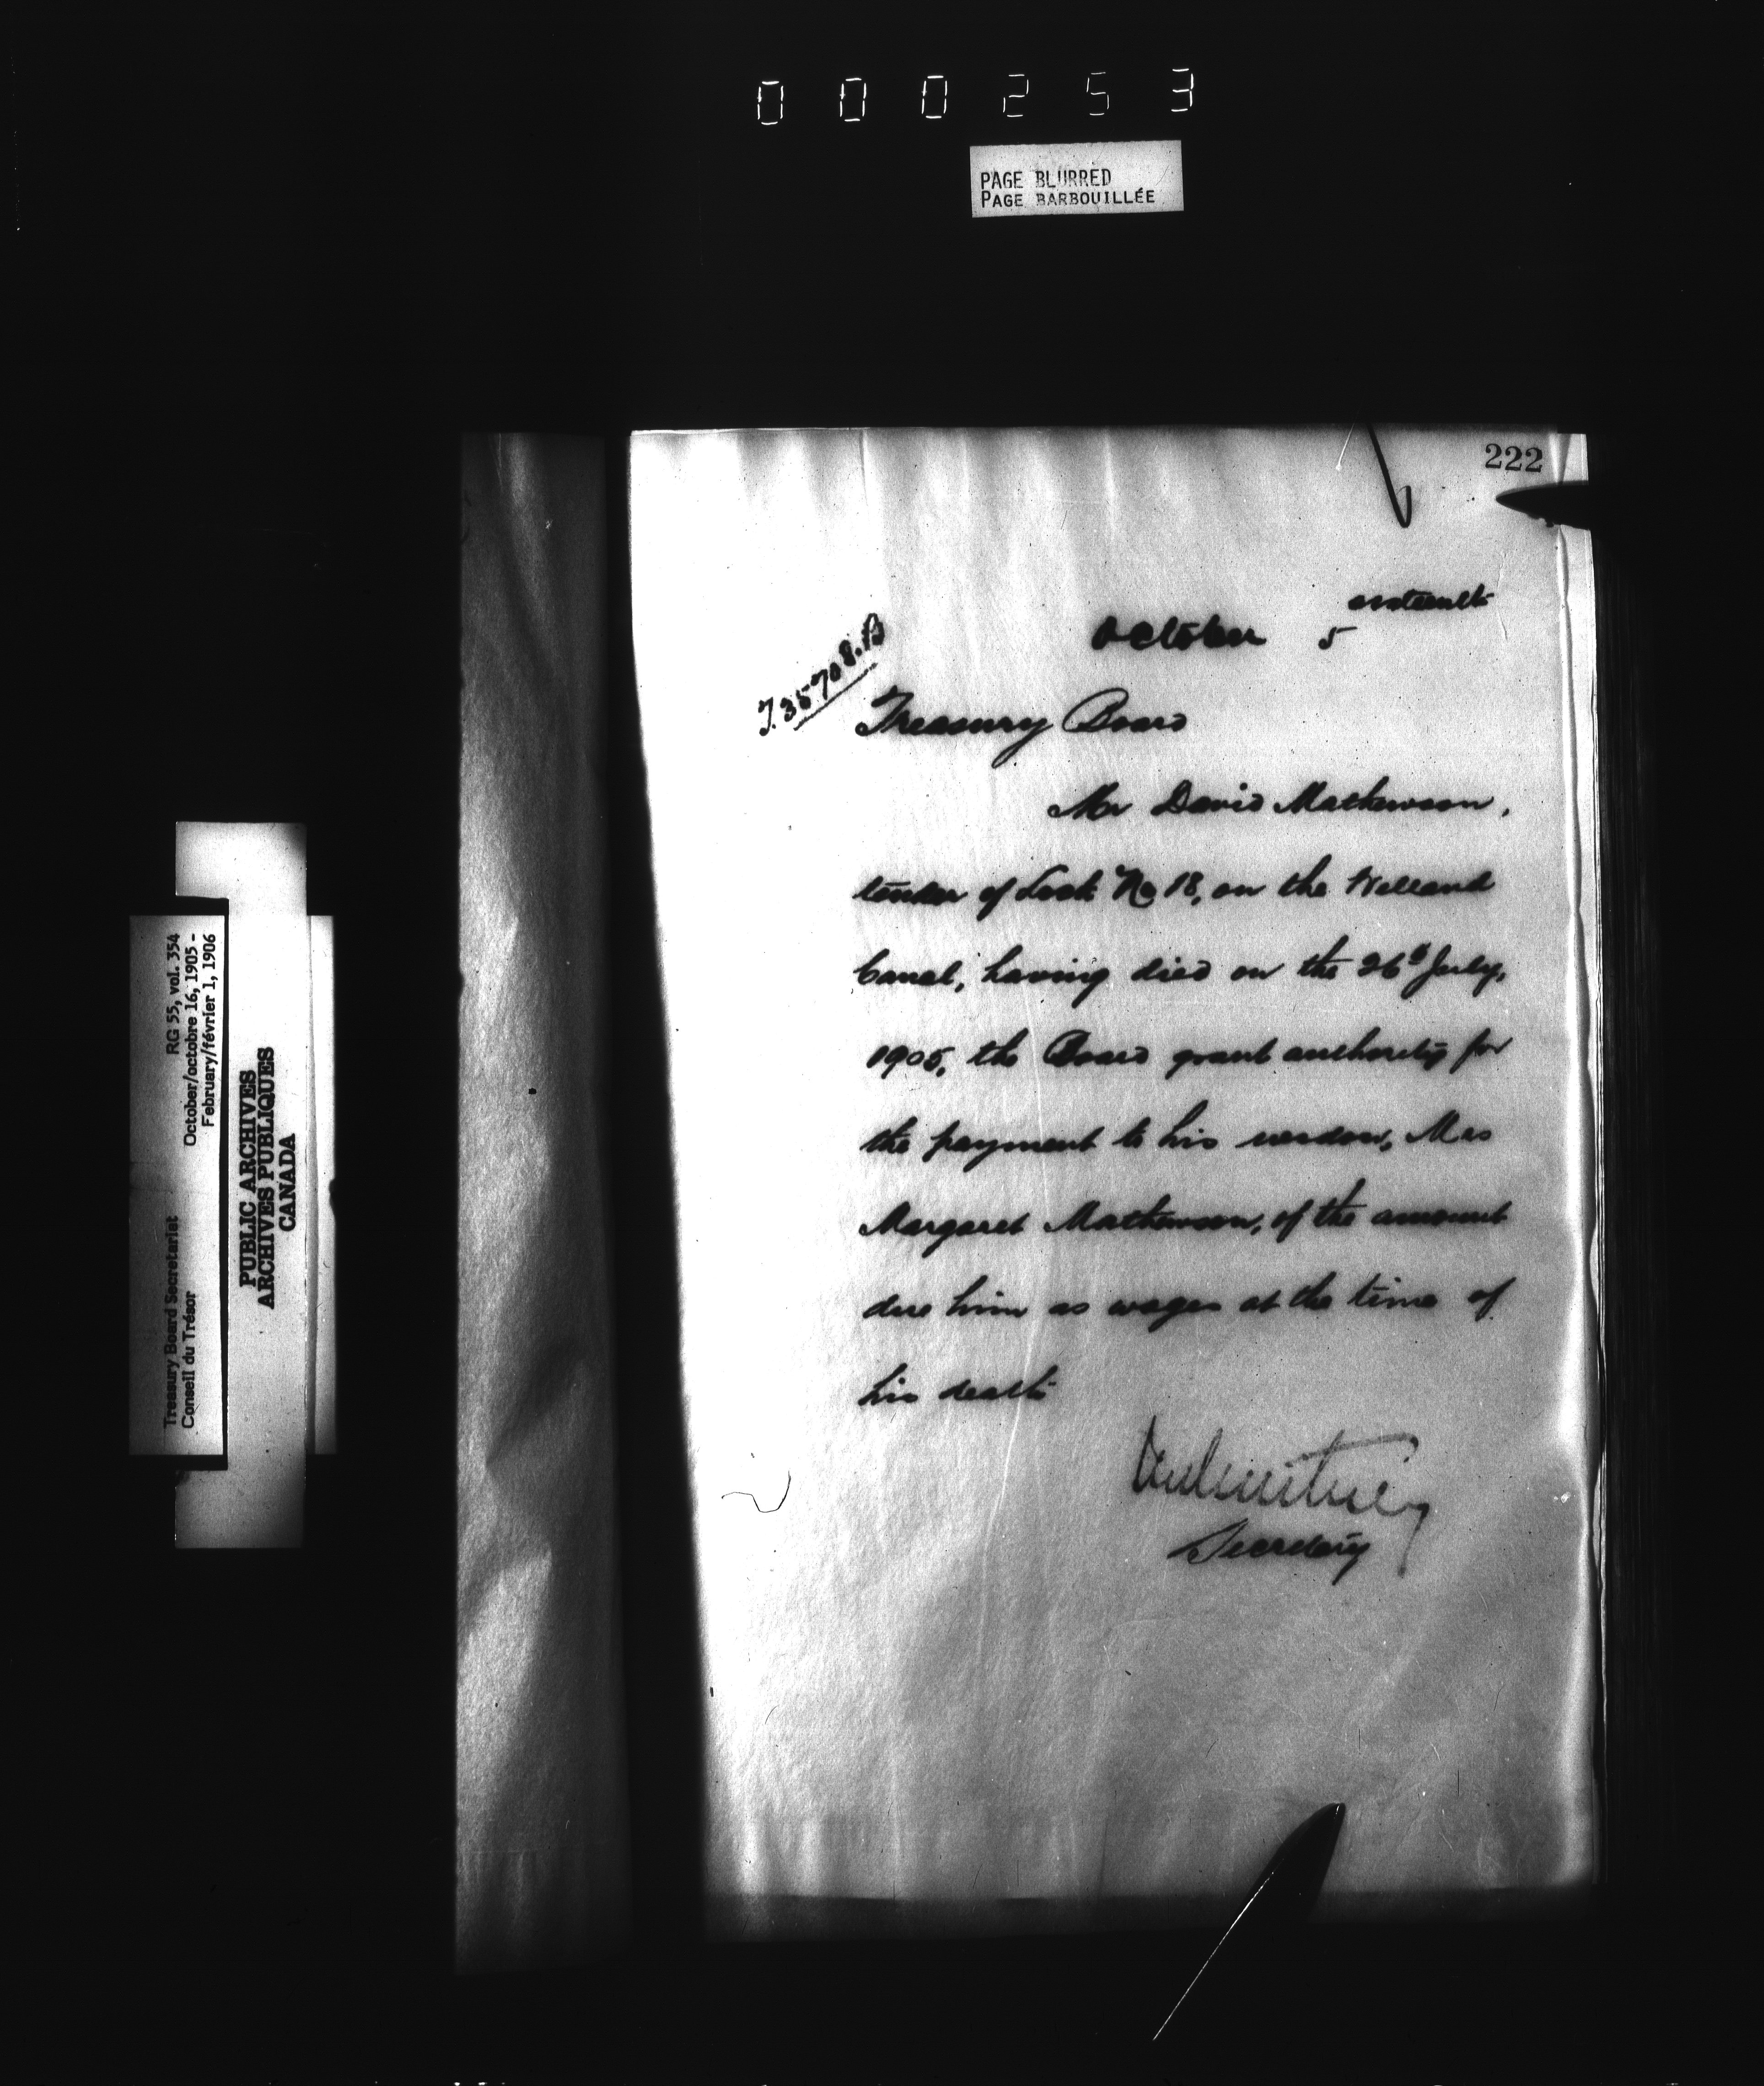 000253
PAGE BLURRED
PAGE BARBOUILLÉE
RG 55, vol. 354
October/octobre 16, 1905 -
February/février 1, 1906
Treasury Board Secretariat
Conseil du Trésor
PUBLIC ARCHIVES
ARCHIVES PUBLIQUES
CANADA
222
sixteenth
October 5
T.35708.B
Treasury Board
Mr David Mathewson,
tender of Lock No 18, on the Welland
Canal, having died on the 26th July,
1905, the Board grant authority for
the payment to his widow, Mrs
Margaret Mathewson, of the amount
due him as wages at the time of
his death
Secretary